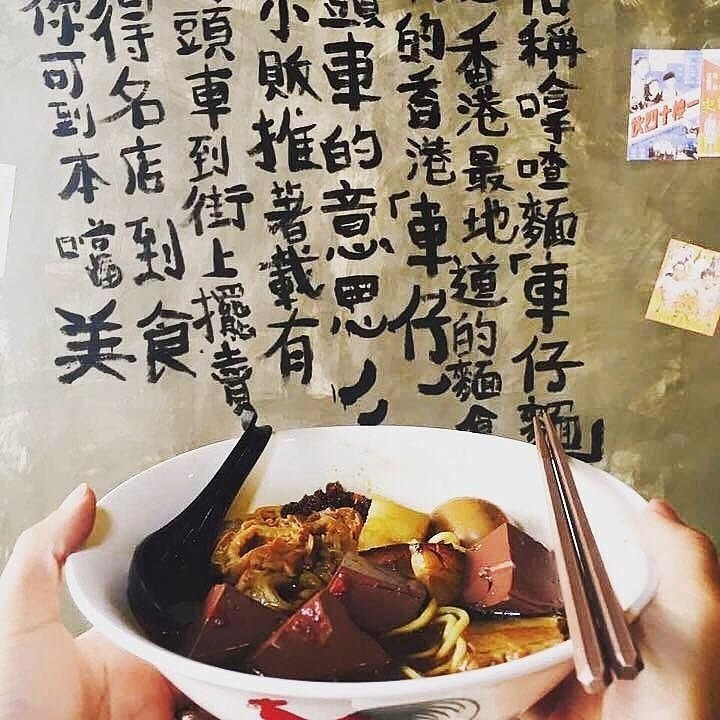 俗稱嗱喳麵「車仔麵」
是香港最地道的麵食
的香港「車仔」
頭車的意思，
小販推著載有
頭車到街上擺賣
得名
你可到
本店
嚐到
美食
一樓十四伙